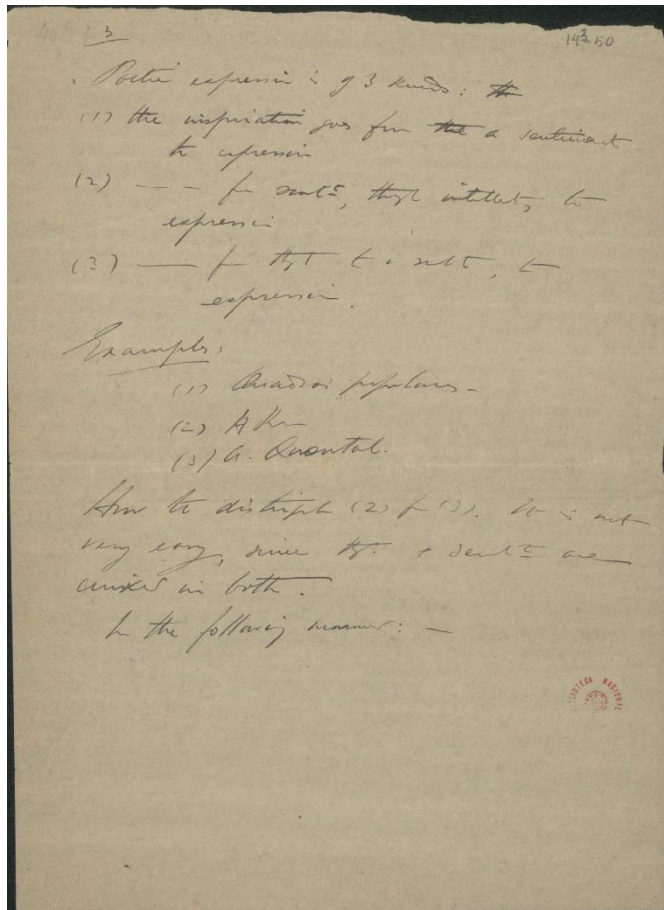 3
14³ 50
Poetic expression is of 3 kinds:
(1) the inspiration goes from a sentiment
to expression
(2) —— fr sentt, thgh intellect, to
expression
(3) —— fr thgt to a sentt, to
expression.
Examples:
(1) Quadras populares –
(2)
(3) A. Quental.
How to distinguish (2) fr (3). It is not
very easy, since tht. + sentt are
mixed in both.
In the following manner: —
BIBLIOTECA NACIONAL